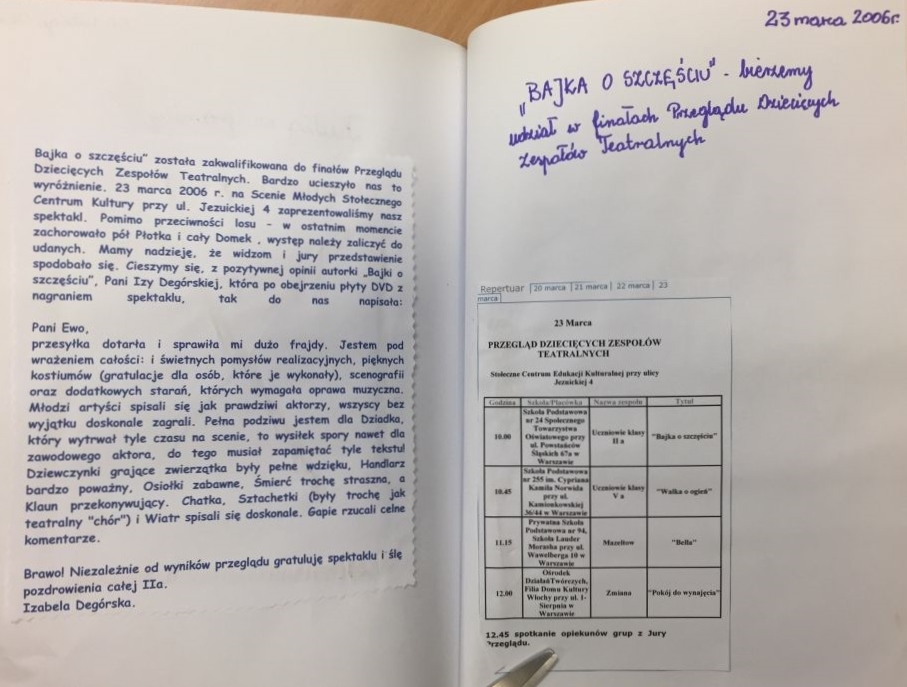 Bajka o szczęściu” została zakwalifikowana do finałów Przeglądu
Dziecięcych Zespołów Teatralnych. Bardzo ucieszyło nas to
wyróżnienie. 23 marca 2006 r. na Scenie Młodych Stołecznego
Centrum Kultury przy ul. Jezuickiej 4 zaprezentowaliśmy nasz
spektakl. Pomimo przeciwności losu - w ostatnim momencie
zachorowało pół Płotka i cały Domek , występ należy zaliczyć do
udanych. Mamy nadzieję, że widzom i jury przedstawienie
spodobało się. Cieszymy się, z pozytywnej opinii autorki „Bajki o
szczęściu”, Pani Izy Degórskiej, która po obejrzeniu płyty DVD z
nagraniem spektaklu, tak do nas napisała:
Pani Ewo,
przesyłka dotarła i sprawiła mi dużo frajdy. Jestem pod
wrażeniem całości: i świetnych pomysłów realizacyjnych, pięknych
kostiumów (gratulacje dla osób, które je wykonały), scenografii
oraz dodatkowych starań, których wymagała oprawa muzyczna.
Młodzi artyści spisali się jak prawdziwi aktorzy, wszyscy bez
wyjątku doskonale zagrali. Pełna podziwu jestem dla Dziadka,
który wytrwał tyle czasu na scenie, to wysiłek spory nawet dla
zawodowego aktora, do tego musiał zapamiętać tyle tekstu!
Dziewczynki grające zwierzątka były pełne wdzięku, Handlarz
bardzo poważny, Osiołki zabawne, Śmierć trochę straszna, a
Klaun przekonywujący. Chatka, Sztachetki (były trochę jak
teatralny "chór") i Wiatr spisali się doskonale. Gapie rzucali celne
komentarze.
Brawo! Niezależnie od wyników przeglądu gratuluję spektaklu i ślę
pozdrowienia całej IIa.
Izabela Degórska.
23 marca 2006r.
„BAJKA O SZCZĘŚCIU" - bierzemy
udział w finałach Przeglądu Dziecięcych
Zespołów Teatralnych
Repertuar | 20 marca | 21 marca | 22 marca | 23
marca |
23 Marca
PRZEGLĄD DZIECIĘCYCH ZESPOŁÓW
TEATRALNYCH
Stołeczne Centrum Edukacji Kulturalnej przy ulicy
Jezuickiej 4
Godzina Szkoła/Placówka Nazwa zespołu Tytuł
Szkoła Podstawowa
nr 24 Społecznego
Towarzystwa
10.00 Oświatowego przy Uczniowie klasy II a "Bajka o szczęściu"
ul. Powstańców
Śląskich 67a w
Warszawie
Szkoła Podstawowa
nr 255 im. Cypriana
10.45 Kamila Norwida Uczniowie klasy V a "Walka o ogień"
przy ul.
Kamionkowskiej
36/44 w Warszawie
Prywatna Szkoła
Podstawowa nr 94,
11.15 Szkoła Lauder Mazeltow "Bella"
Morasha przy ul.
Wawelberga 10 w
Warszawie
Ośrodek
DziałańTwórczych,
12.00 Filia Domu Kultury Zmiana "Pokój do wynajęcia"
Włochy przy ul. 1-
Sierpnia w
Warszawie
12.45 spotkanie opiekunów grup z Jury
Przeglądu.